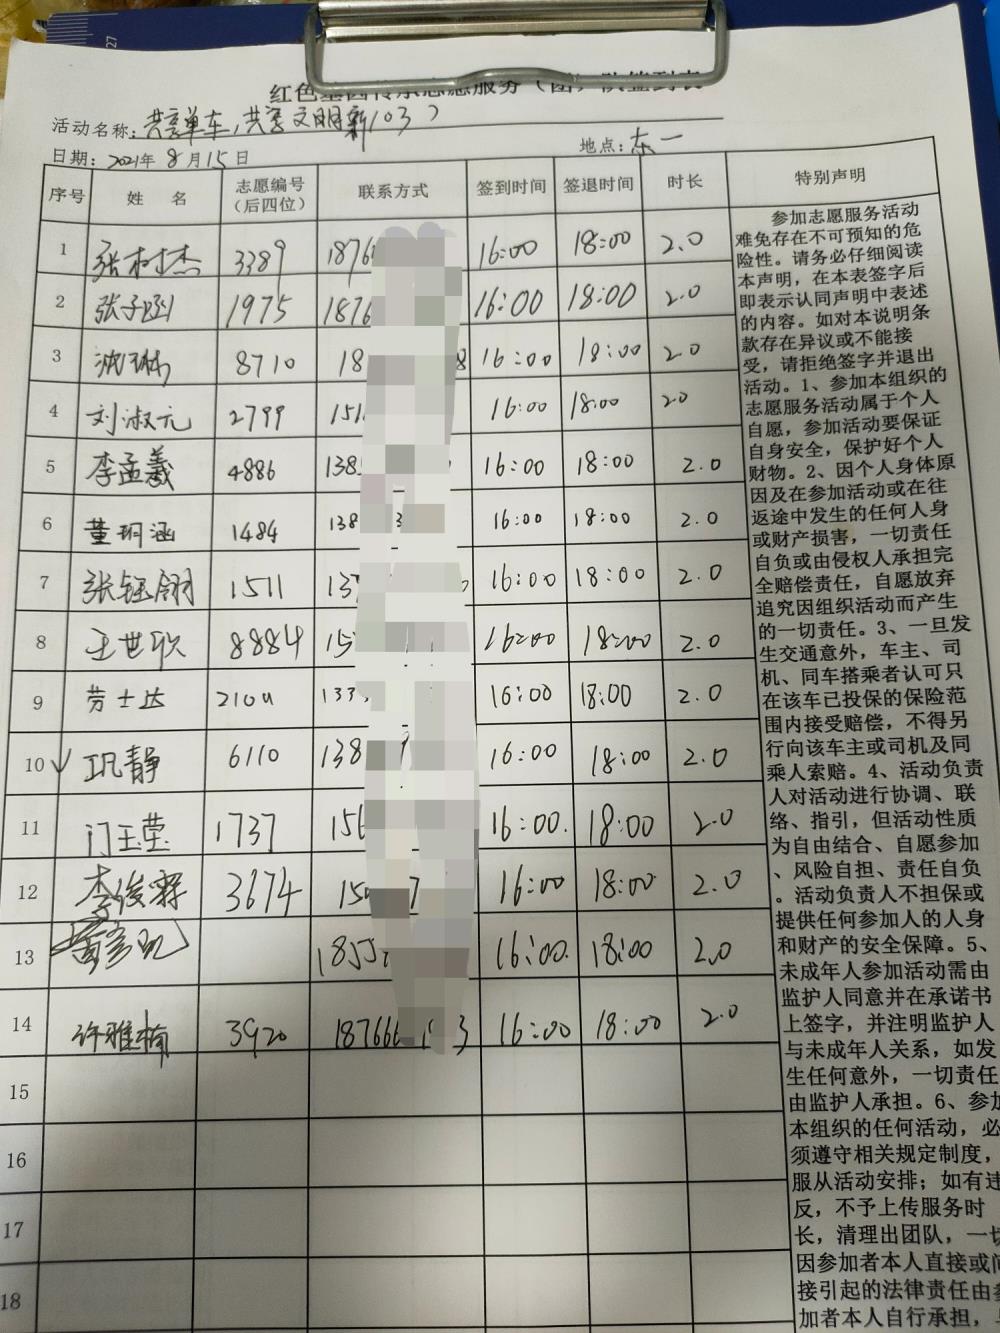 活动名称：共享单车，共享文明新（03）
日期：2021年8月15日 地点：东一
序号 姓 名 志愿编号（后四位） 联系方式 签到时间 签退时间 时长 特别声明
1 张树杰 3389 1876 16:00 18:00 2.0
2 张子函 1975 1876 16:00 18:00 2.0
3 8710 18 8 16:00 18:00 2.0
4 刘淑元 2799 151 16:00 18:00 2.0
5 李孟羲 4886 138 16:00 18:00 2.0
6 董玥涵 1484 138 3 16:00 18:00 2.0
7 张钰翮 1511 137 16:00 18:00 2.0
8 王世职 8884 15 16:00 18:00 2.0
9 劳士达 2104 133 16:00 18:00 2.0
10 巩静 6110 138 16:00 18:00 2.0
11 门玉莹 1737 156 16:00. 18:00 2.0
12 李俊霖 3674 150 7 16:00 18:00 2.0
13 黄彦凯 1855 16:00. 18:00 2.0
14 许雅楠 3920 187666 3 16:00 18:00 2.0
15
16
17
18
参加志愿服务活动
难免存在不可预知的危
险性。请务必仔细阅读
本声明，在本表签字后
即表示认同声明中表述
的内容。如对本说明条
款存在异议或不能接
受，请拒绝签字并退出
活动。1、参加本组织的
志愿服务活动属于个人
自愿，参加活动要保证
自身安全，保护好个人
财物。2、因个人身体原
因及在参加活动或在往
返途中发生的任何人身
或财产损害，一切责任
自负或由侵权人承担完
全赔偿责任，自愿放弃
追究因组织活动而产生
的一切责任。3、一旦发
生交通意外，车主、司
机、同车搭乘者认可只
在该车已投保的保险范
围内接受赔偿，不得另
行向该车主或司机及同
乘人索赔。4、活动负责
人对活动进行协调、联
络、指引，但活动性质
为自由结合、自愿参加
、风险自担、责任自负
。活动负责人不担保或
提供任何参加人的人身
和财产的安全保障。5、
未成年人参加活动需由
监护人同意并在承诺书
上签字，并注明监护人
与未成年人关系，如发
生任何意外，一切责任
由监护人承担。6、参加
本组织的任何活动，必
须遵守相关规定制度，
服从活动安排；如有违
反，不予上传服务时
长，清理出团队，一切
因参加者本人直接或间
接引起的法律责任由参
加者本人自行承担，